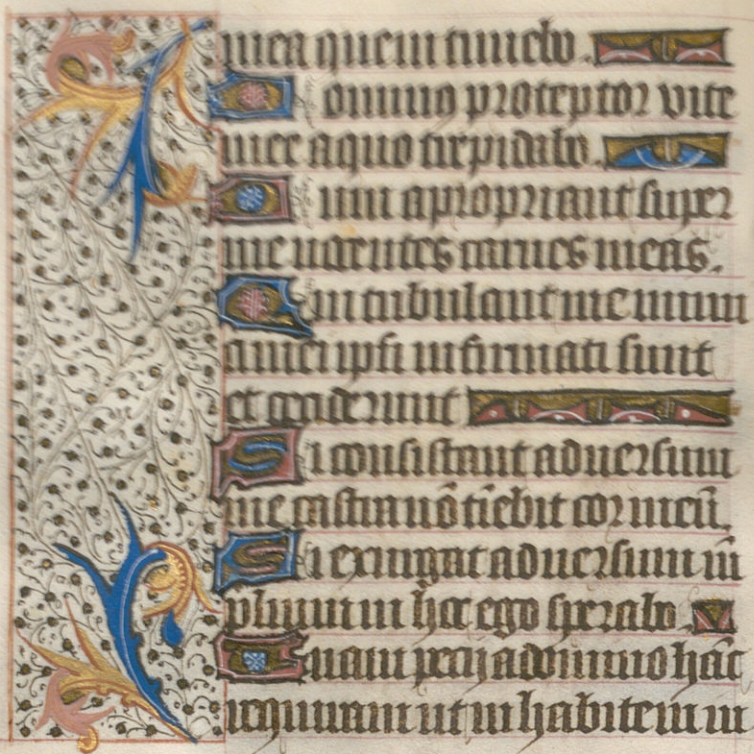 mea quem timebo.
Dominus protector vite
mee a quo trepidabo.
Dum apropriant super
me nocentes carnes meas.
Qui tribulant me inimi
ci mei ipsi infirmati sunt
et ceciderunt
Si consistant adversum
me castra nō timebit cor meū.
Si exurgat adversum m̄
plium in hoc ego sperabo.
Unam pecij a domino hāc
requiram ut inhabitem in